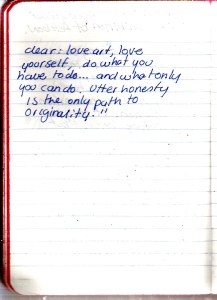 clear: love art, love
yourself, do what you
have to do... and what only
you can do. Utter honesty
is the only path to
originality."